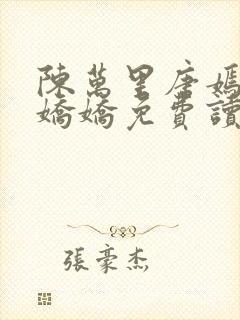 陳萬里唐嫣
嬌嬌免費讀
張豪杰